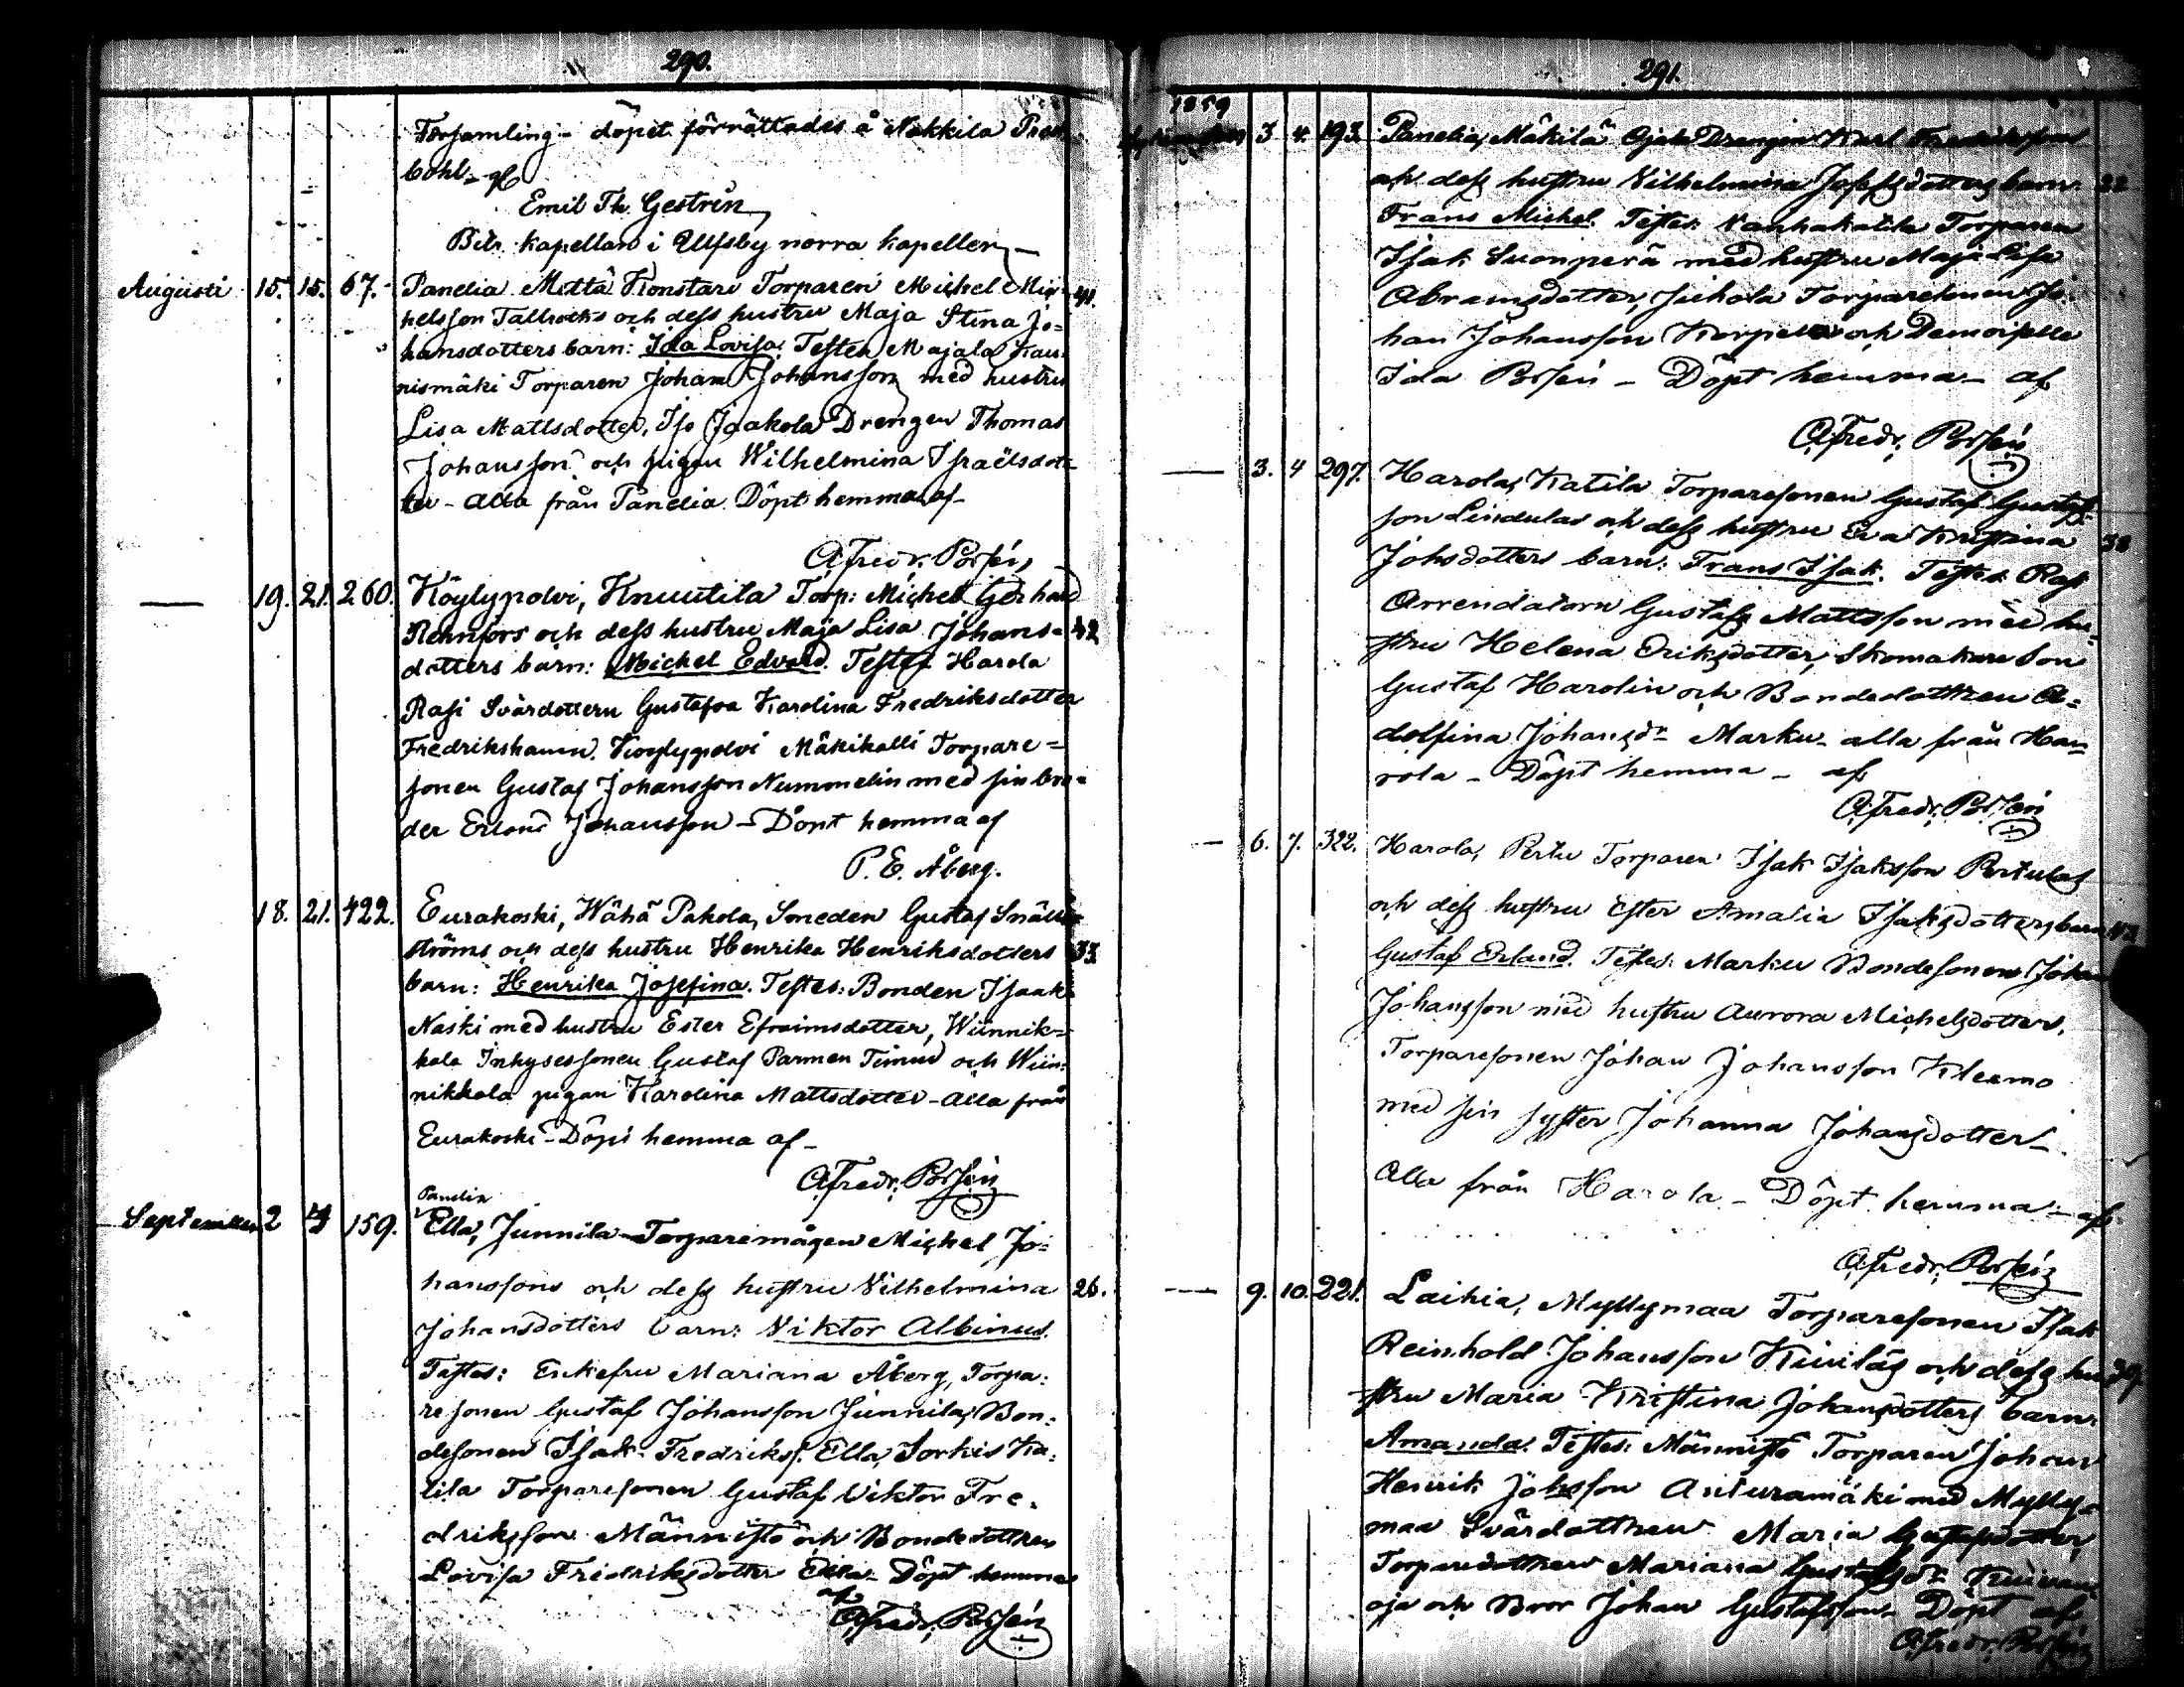 290.
Församling - döpet förrättades å Nakkila Prest
bohl - af
Emil Th. Gestrin
Bitr. kapellan i Ulfsby norra kapeller
Augusti 15. 15. 67. Panelia Mettä Konstari Torparen Michel Mic= 41.
helsson Tallroths och dess hustru Maja Stina Jo=
hansdotters barn: Ida Lovisa. Testes, Majala Kau
nismäki Torparen Johan Johansson med hustru
Lisa Mattsdotter, Iso Jaakola Drengen Thomas
Johansson och pigan Wilhelmina Israëlsdot=
ter - Alla från Panelia. Döpt hemma af -
A. Fredr. Borsén
— 19. 21. 260. Köylypolvi, Knuutila Torp: Michel Gerhard
Rennfors och dess hustru Maja Lisa Johans= 42
dotters barn: Michel Edvard. Testes Harola
Rasi Svärdottern Gustafva Karolina Fredriksdotter
Fredrikshamn. Köylypolvi Mäkikalli Torpare=
sonen Gustaf Johansson Nummelin med sin bro=
der Erland Johansson - Döpt hemma af
P. E. Åberg.
18. 21. 422. Eurakoski, Wähä Pakola, Smeden Gustaf Snäll
ströms och dess hustru Henrika Henriksdotters 33.
barn: Henrika Josefina. Testes: Bonden Isaak
Naski med hustru Ester Efraimsdotter, Wiinnik=
kala Inhysessonen Gustaf Parmen Timur och Wiin=
nikkala pigan Karolina Mattsdotter - Alla från
Eurakoski - Döpt hemma af -
A. Fredr. Borsén
Panelia
September 2 4 159. Ella, Junnila Torparemågen Michel Jo=
hanssons och dess hustru Vilhelmina 26.
Johansdotters barn: Viktor Albinus.
Testes: Enkefru Mariana Åberg, Torpa=
resonen Gustaf Johansson Junnila, Bon=
desonen Isak Fredrikss. Ella, Sorkis Ka=
tila Torparesonen Gustaf Viktor Fre=
driksson Männistö och Bondedottren
Lovisa Fredriksdotter Ella - Döpt hemma
af
A. Fredr. Borsén
291.
1859
September 3 4. 193. Panelia, Mäkilä Ajala Drengen Karl Fredriksson
och dess hustru Vilhelmina Josefsdotters barn 22
Frans Michel. Testes: Vanhakatila Torparen
Isak Suonperä med hustru Maja Lisa
Abramsdotter, Juhola Torparesonen Jo=
han Johansson Korpela och Demoiselle
Ida Borsén - Döpt hemma - af
A. Fredr. Borsén
— 3. 4 297. Harola, Katila Torparesonen Gustaf Gustafs=
son Lindulas och dess hustru Eva Kristina 38
Johsdotters barn: Frans Isak. Testes: Rasi
Arrendatorn Gustaf Mattsson med hu=
stru Helena Eriksdotter, Skomakare Son
Gustaf Harolin och Bondedottren A=
dolfina Johansdr Marku - alla från Ha=
rola - Döpt hemma - af
A. Fredr. Borsén
— 6. 7. 322. Harola, Pertu Torparen Isak Isaksson Pertulas
och dess hustru Ester Amalia Isaksdotters barn 43
Gustaf Erland. Testes: Marku Bondesonen Johan
Johansson med hustru Aurora Michelsdotter,
Torparesonen Johan Johansson Klemo
med sin syster Johanna Johansdotter -
Alla från Harola - Döpt hemma - af
A. Fredr. Borsén
— 9. 10. 221. Laihia, Myllymaa Torparesonen Isak
Reinhold Johansson Kiviläs och dess hu 39.
stru Maria Kristina Johansdotters barn:
Amanda. Testes: Männistö Torparen Johan
Henrik Johsson Anturamäki med Mylly=
maa Svärdottren Maria Gustafsdotter,
Torparedottren Mariana Gustafsdr
oja och Bror Johan Gustafsson - Döpt af
A. Fredr. Borsén